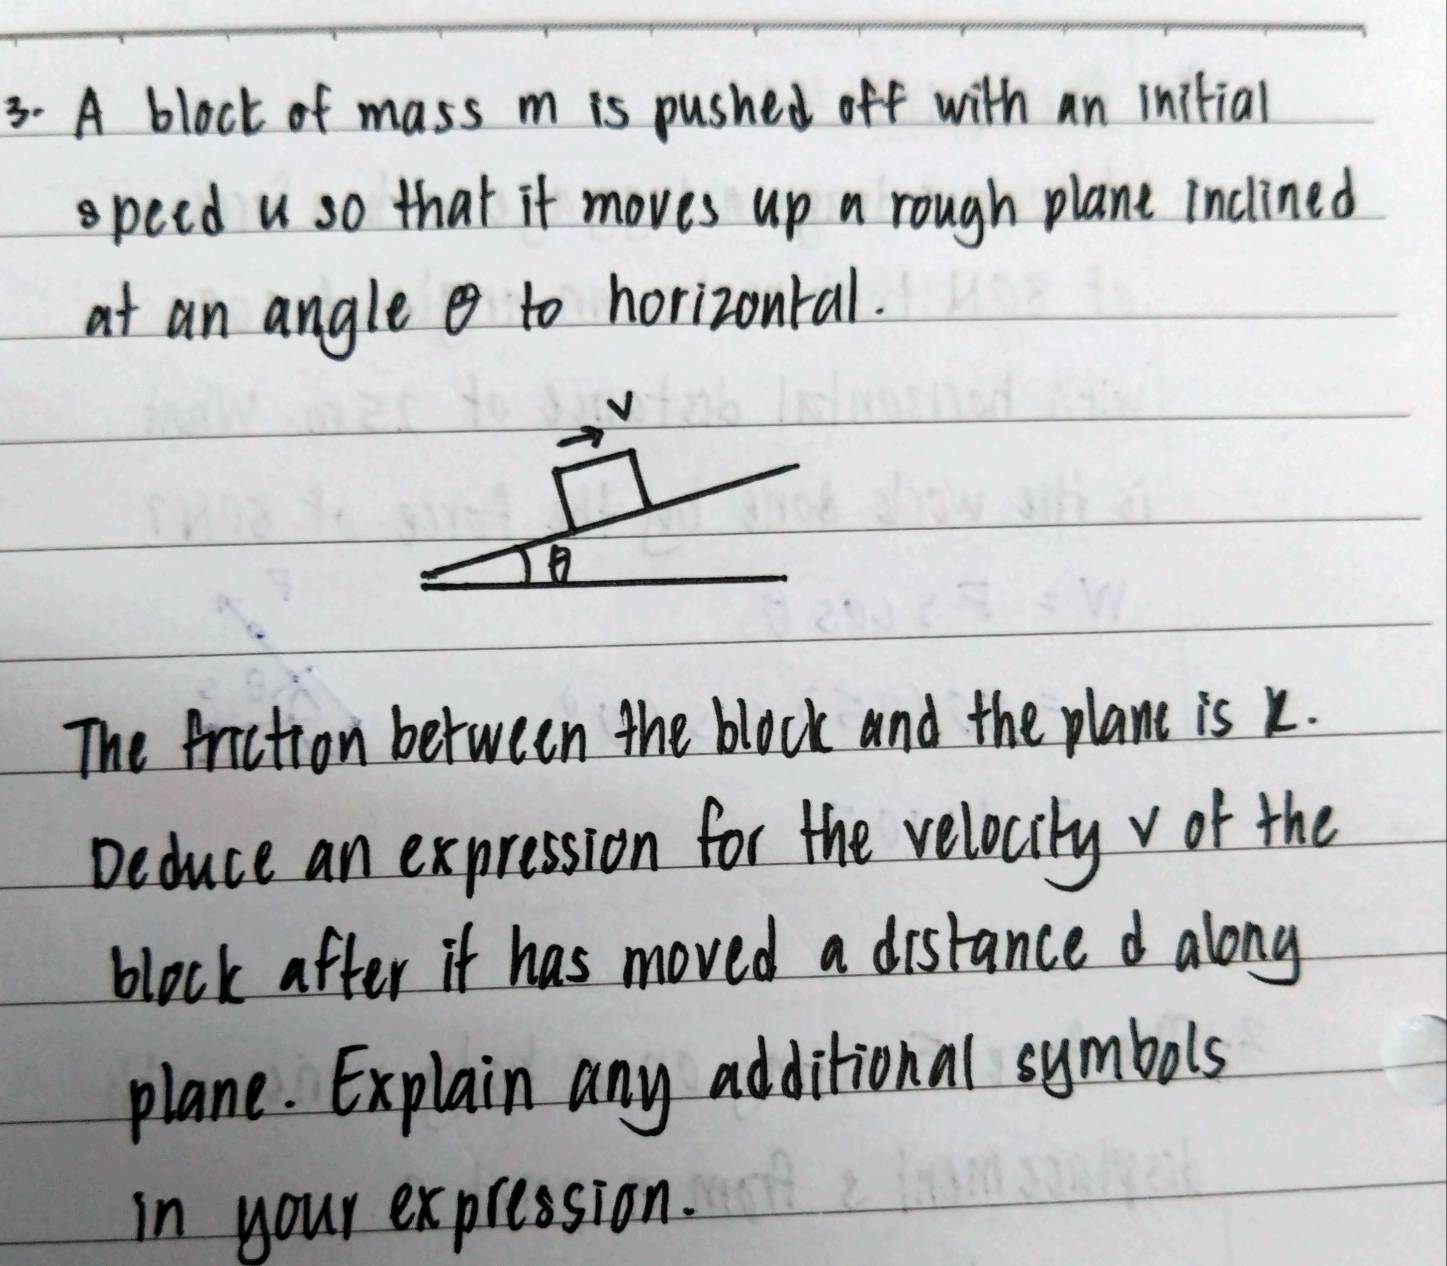 3. A block of mass m is pushed off with an initial
speed u so that it moves up a rough plane inclined
at an angle θ to horizontal.
v
θ
The friction between the block and the plane is k.
Deduce an expression for the velocity v of the
block after it has moved a distance d along
plane. Explain any additional symbols
in your expression.